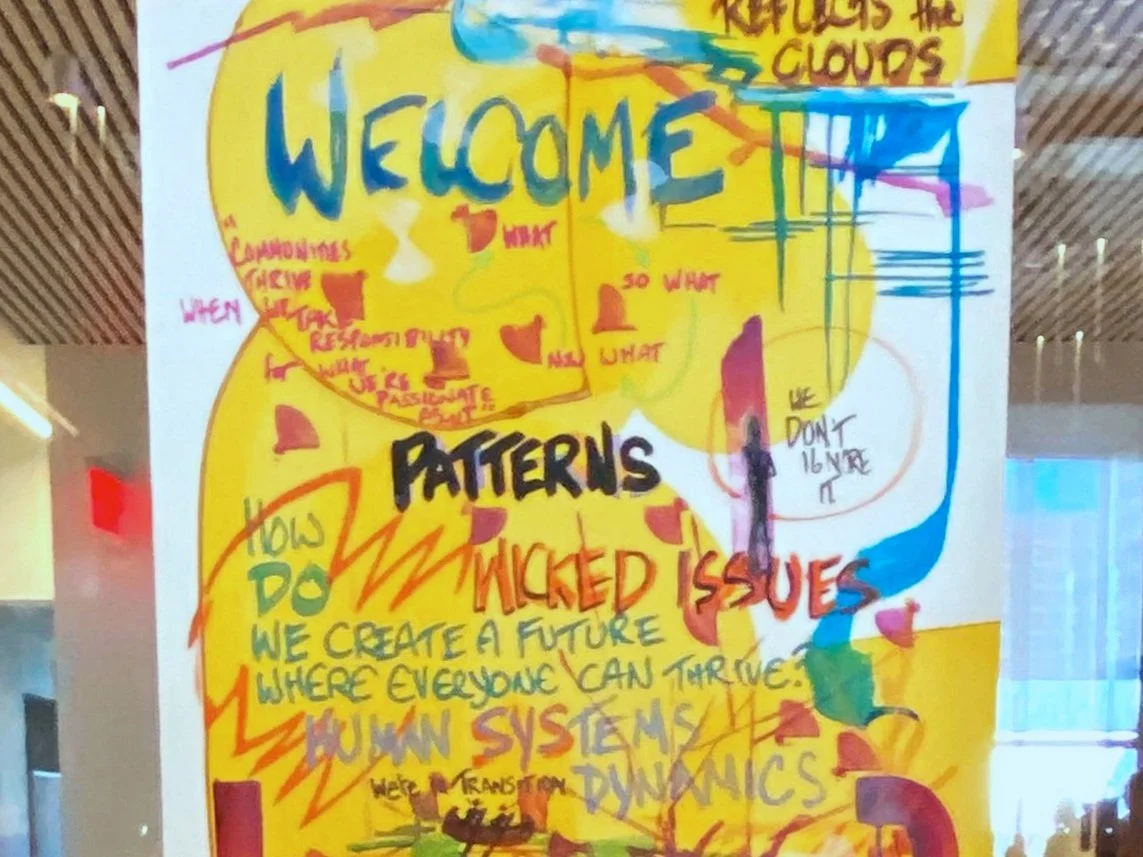 REFLECTS the
CLOUDS
WELCOME
"COMMUNITIES
THRIVE
WHEN WE
TAKE
RESPONSIBILITY
for WHAT
WE'RE
PASSIONATE
ABOUT"
WHAT
SO WHAT
NOW WHAT
PATTERNS
WE
DON'T
IGNORE
IT
WICKED ISSUES
HOW
DO
WE CREATE A FUTURE
WHERE EVERYONE CAN THRIVE?
HUMAN SYSTEMS
DYNAMICS
We're in TRANSITION